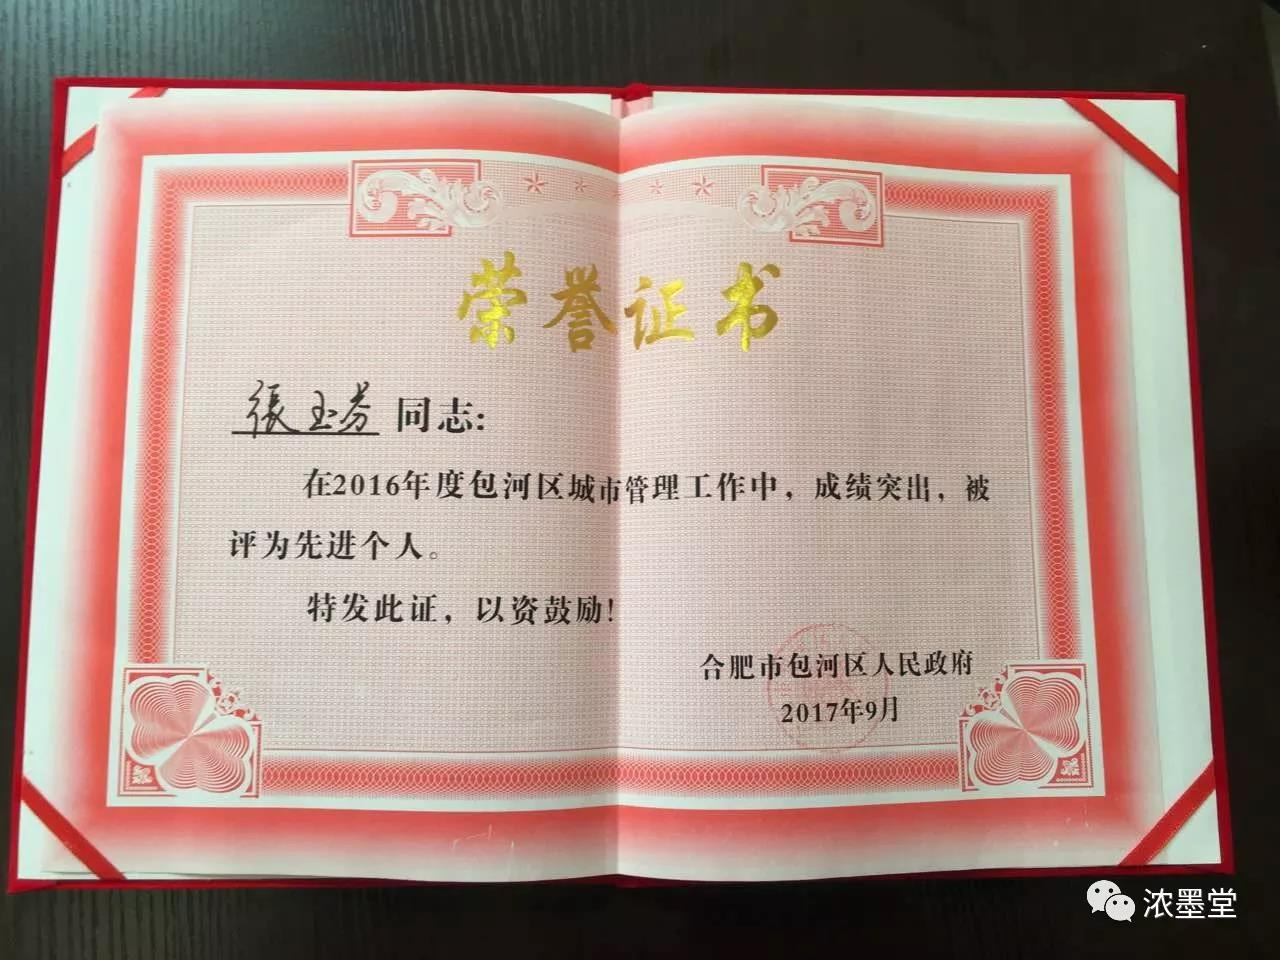 荣誉证书
張玉芬 同志:
在2016年度包河区城市管理工作中，成绩突出，被
评为先进个人。
特发此证，以资鼓励!
合肥市包河区人民政府
2017年9月
浓墨堂